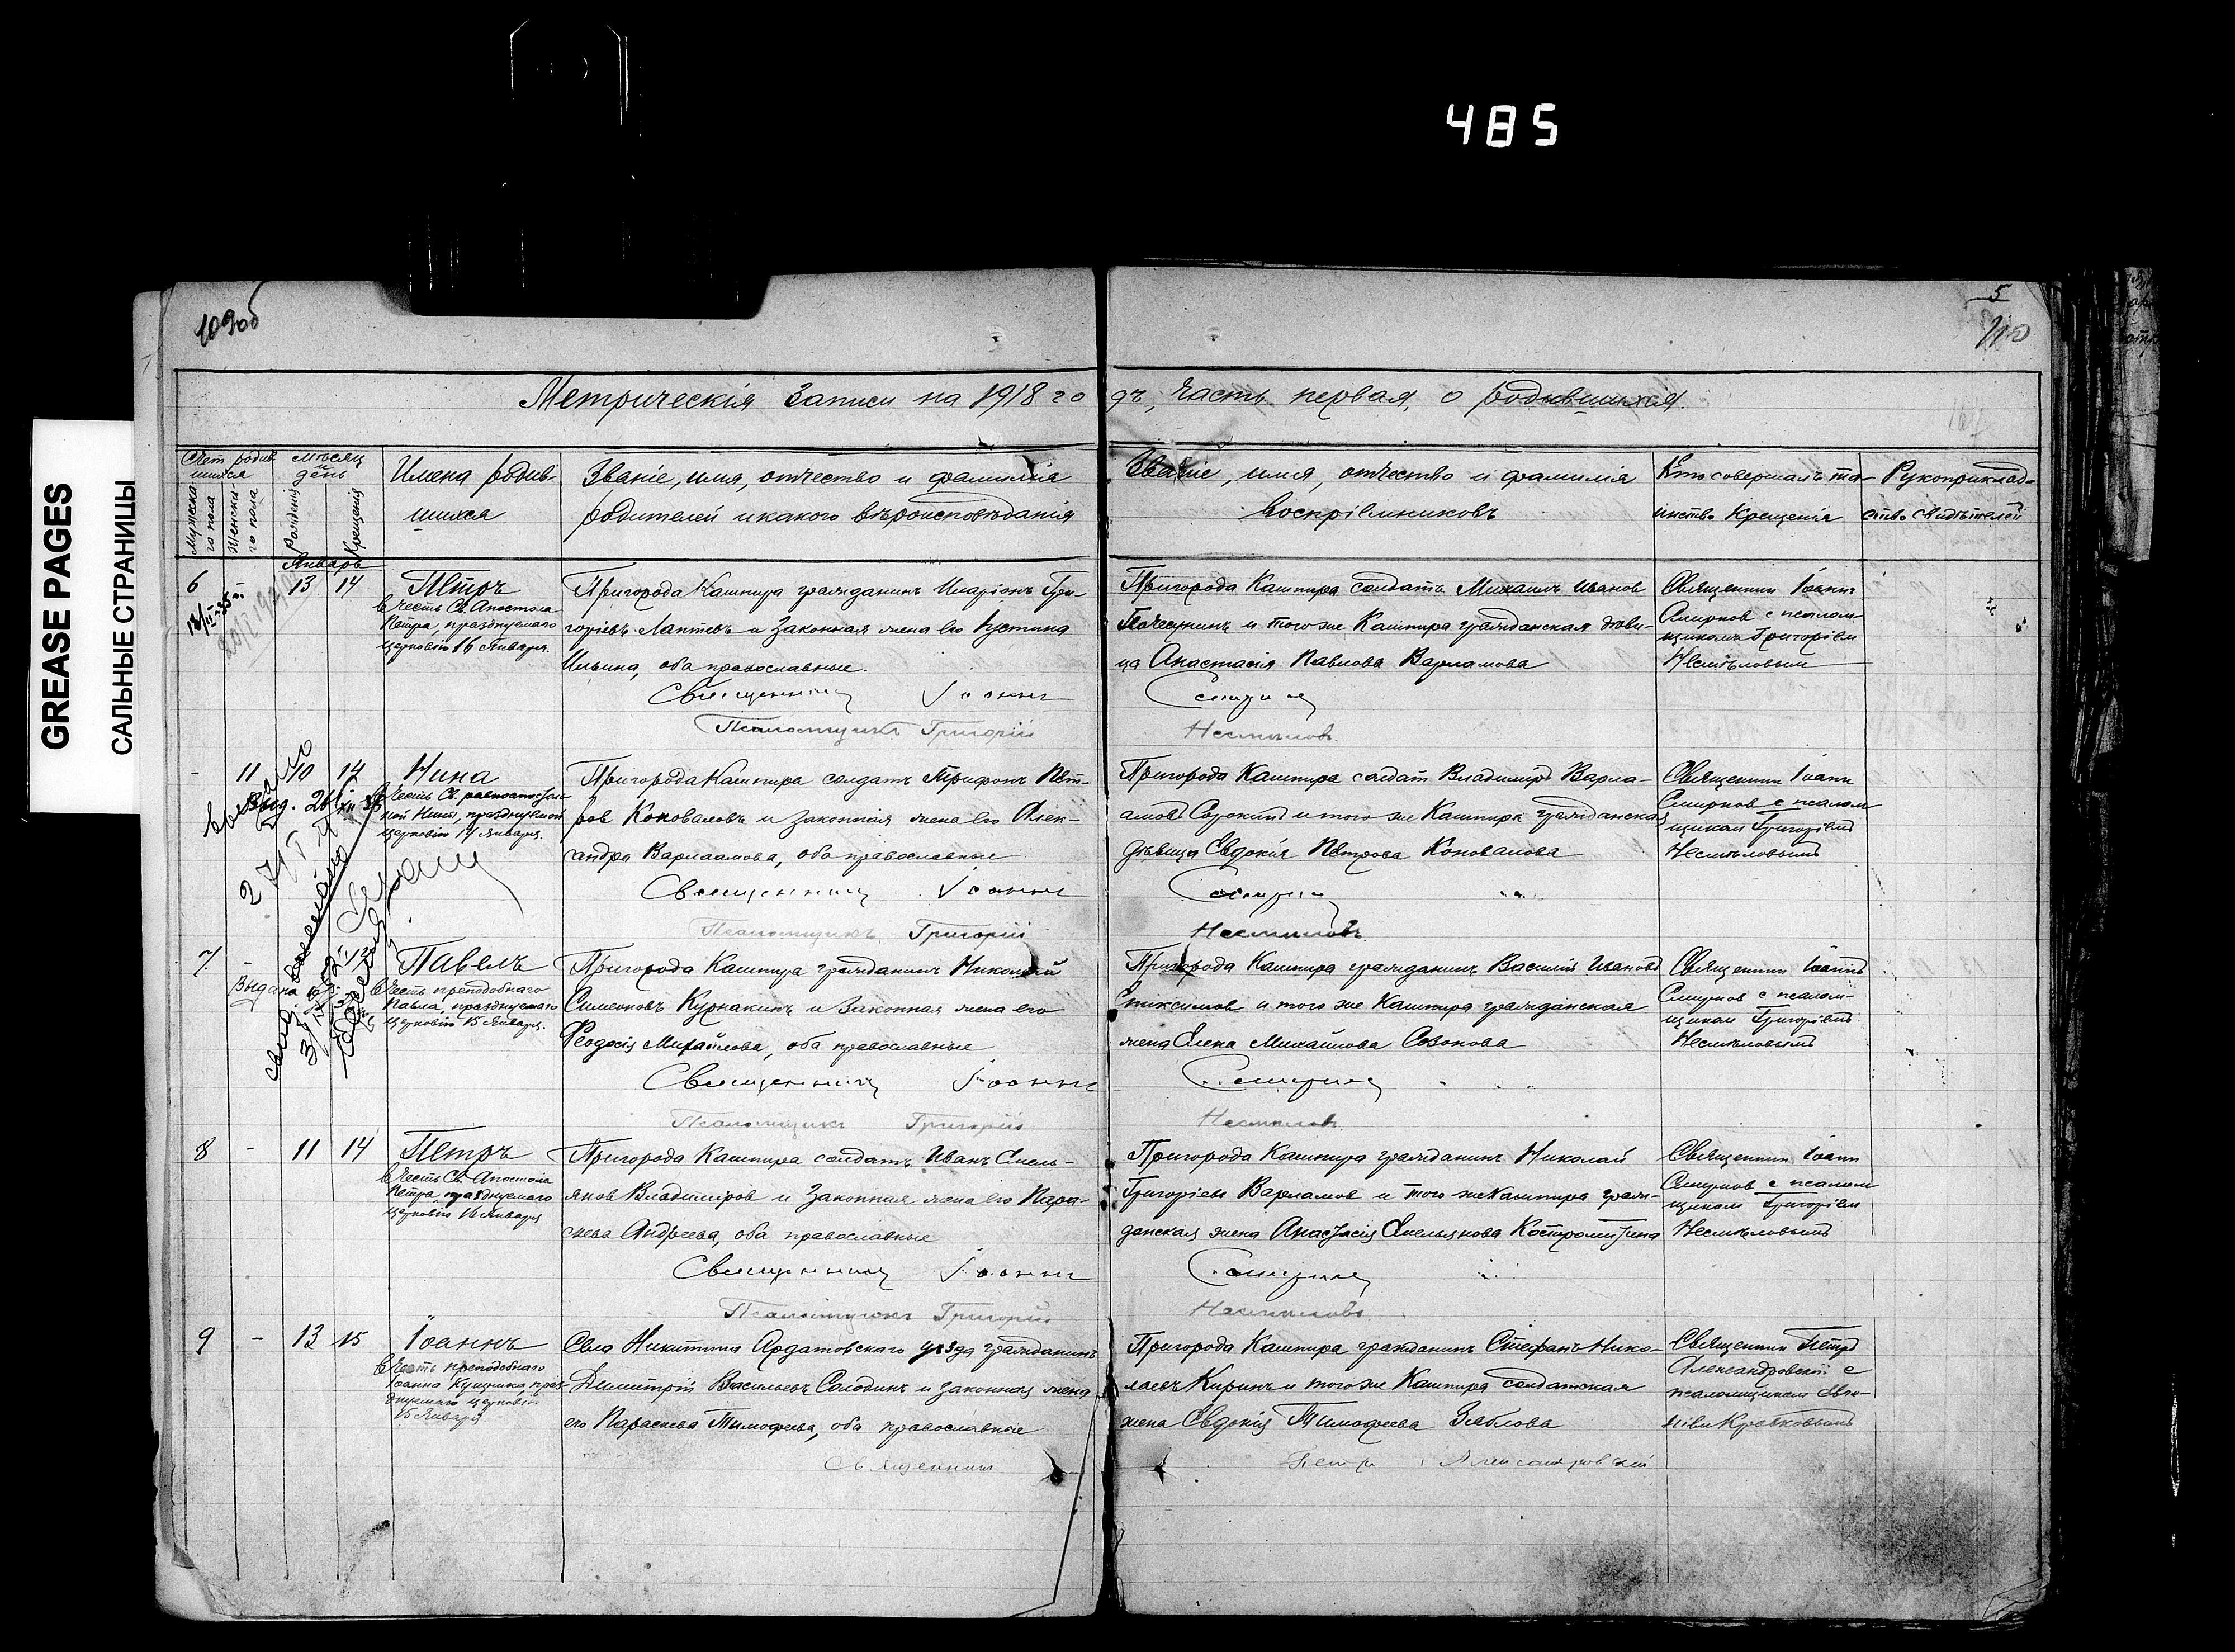 485
GREASE PAGES
САЛЬНЫЕ СТРАНИЦЫ
109об
5
110
Метрическія Записи на 1918 годъ, часть первая, о родившихся.
Счет родившихся
Мужска-
го пола
Женска-
го пола
мѣсяц
и
день
Рожденія
Крещенія
Имена родив-
шихся
Званіе, имя, отчество и фамилія
родителей и какого вѣроисповѣданія
Званіе, имя, отчество и фамилія
воспріемниковъ
Кто совершалъ та-
инство Крещенія
Рукоприклад-
ство свидѣтелей
Январь
6 - 13 14
Петръ
в честь Св. Апостола
Петра, празднуемаго
церковію 16 Января.
Пригорода Кашпира гражданинъ Иларіонъ Гри-
горіевъ Лаптевъ и Законная жена его Іустина
Ильина, оба православные.
Священникъ Іоаннъ
Псаломщикъ Григорій
Пригорода Кашпира солдатъ Михаилъ Иванов
и того же Кашпира гражданская дѣви-
ца Анастасія Павлова Варламова
Смирнов
Несмѣловъ
Священник Іоаннъ
Смирнов с псалом-
щикомъ Григоріем
Несмѣловым
- 11 10 14
Нина
в честь Св. равноапостоль-
ной Нины, празднуемой
церковію 14 Января.
Пригорода Кашпира солдатъ Трифонъ Пет-
ров Коноваловъ и законная жена его Алек-
сандра Варлаамова, оба православные
Священникъ Іоаннъ
Псаломщикъ Григорій
Пригорода Кашпира солдат Владиміръ Варла-
амовъ Сорокинъ и того же Кашпира гражданская
дѣвица Евдокія Петрова Коновалова
Смирнов
Несмѣловъ
Священник Іоанн
Смирнов с псалом
щиком Григоріемъ
Несмѣловымъ
7 -
Выдана
Павелъ
в честь преподобнаго
Павла, празднуемаго
церковію 15 Января.
Пригорода Кашпира гражданинъ Николай
Симеоновъ Курнакинъ и Законная жена его
Феодосія Михайлова, оба православные
Священникъ Іоаннъ
Псаломщикъ Григорій
Пригорода Кашпира гражданинъ Василій Ивановъ
и того же Кашпира гражданская
жена Елена Михайлова Созонова
Смирнов
Несмѣловъ
Священник Іоаннъ
Смирнов с псалом-
щиком Григоріемъ
Несмѣловымъ
8 - 11 14
Петръ
в честь Св. Апостола
Петра, празднуемаго
церковію 16 Января
Пригорода Кашпира солдатъ Иванъ Емель-
янов Владиміров и Законная жена его Пара-
скева Андреева, оба православные
Священникъ Іоаннъ
Псаломщикъ Григорій
Пригорода Кашпира гражданинъ Николай
Григоріевъ Варламов и того же Кашпира граж-
данская жена Анастасія Емельянова Костромитина
Смирнов
Несмѣловъ
Священник Іоанн
Смирнов с псалом
щиком Григоріем
Несмѣловымъ
9 - 13 15
Іоаннъ
в честь преподобнаго
Іоанна Кущника, праз-
днуемаго церковію
15 Января
Села Никитина Ардатовскаго уезда гражданинъ
Димитрій Васильевъ Солодинъ и законная жена
его Параскева Тимофеева, оба православные
Священникъ
Пригорода Кашпира гражданинъ Стефанъ Нико-
лаевъ Киринъ и того же Кашпира солдатская
жена Евдокія Тимофеева Зяблова
Петр Александровскій
Священник Петръ
Александровскій с
псаломщиком